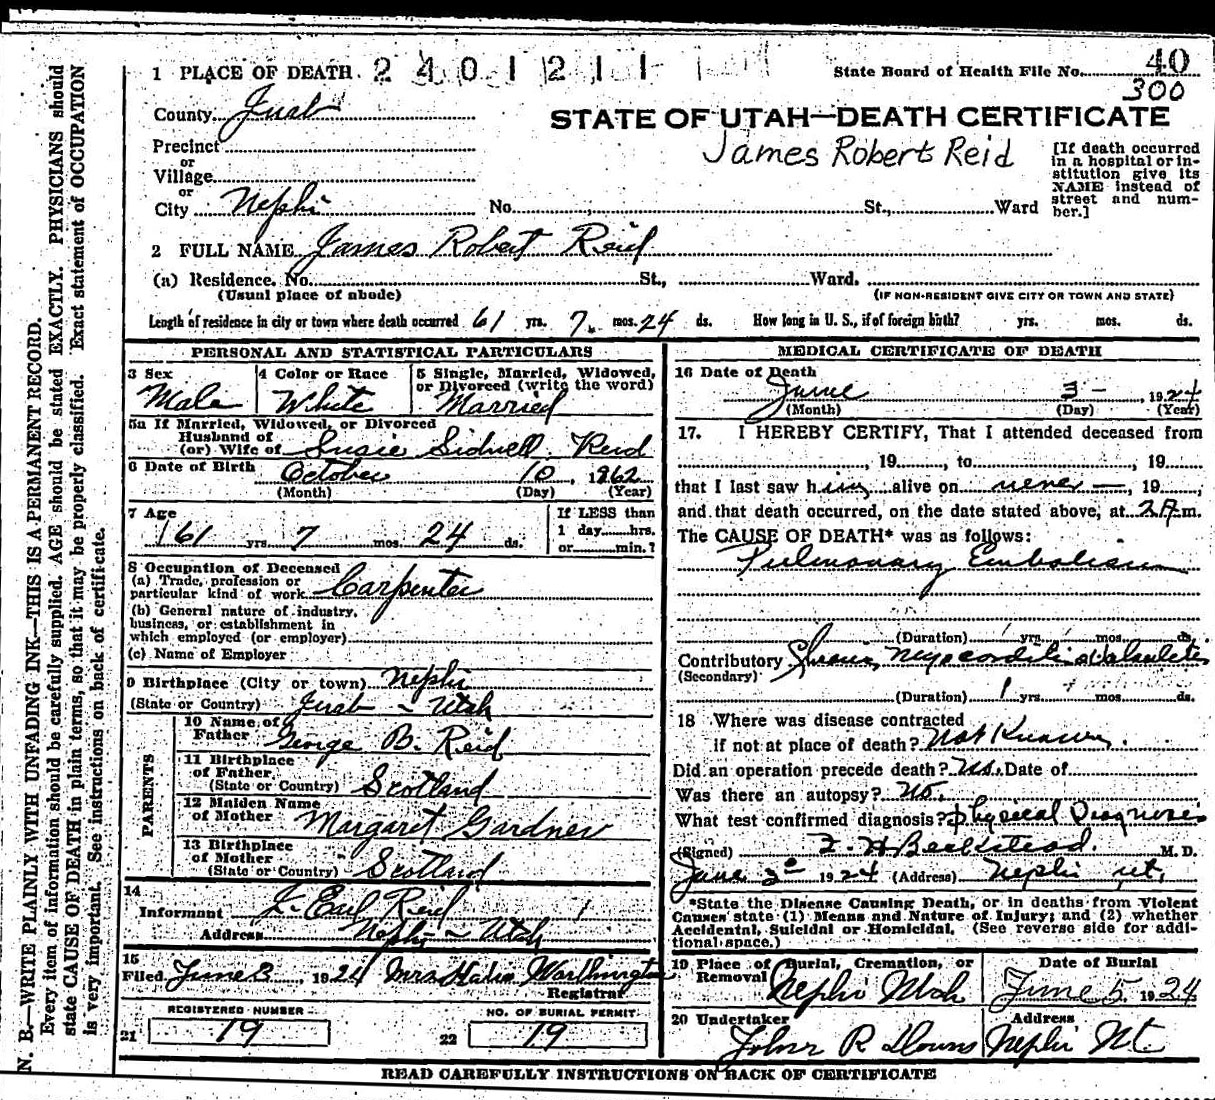 1 PLACE OF DEATH. 2401211
State Board of Health File No. 40
300
County Juab
STATE OF UTAH—DEATH CERTIFICATE
James Robert Reid
[If death occurred in a hospital or in-
stitution give its
NAME instead of
street and num-
ber.]
Precinct
or
Village
or
City Nephi No. St., Ward
2 FULL NAME James Robert Reid
(a) Residence. No. St., Ward.
(Usual place of abode) (IF NON-RESIDENT GIVE CITY OR TOWN AND STATE)
Length of residence in city or town where death occurred 61 yrs. 7 mos. 24 ds. How long in U. S., if of foreign birth? yrs. mos. ds.
PERSONAL AND STATISTICAL PARTICULARS
3 Sex
Male
4 Color or Race
White
5 Single, Married, Widowed,
or Divorced (write the word)
Married
5a If Married, Widowed, or Divorced
Husband of
(or) Wife of Susie Sidwell Reid
6 Date of Birth October 10, 1862
(Month) (Day) (Year)
7 Age
61 yrs. 7 mos. 24 ds.
If LESS than
1 day hrs.
or min.?
8 Occupation of Deceased
(a) Trade, profession or
particular kind of work Carpenter
(b) General nature of industry,
business, or establishment in
which employed (or employer)
(c) Name of Employer
9 Birthplace (City or town) Nephi
(State or Country) Juab - Utah
PARENTS
10 Name of
Father George B. Reid
11 Birthplace
of Father
(State or Country) Scotland
12 Maiden Name
of Mother Margaret Gardner
13 Birthplace
of Mother
(State or Country) Scotland
14
Informant J. Earl Reid
Address Nephi - Utah
15
Filed June 3, 1924 Mrs Worthington
Registrar
REGISTERED NUMBER
21 19
NO. OF BURIAL PERMIT
22 19
MEDICAL CERTIFICATE OF DEATH
16 Date of Death
June 3 - , 1924
(Month) (Day) (Year)
17. I HEREBY CERTIFY, That I attended deceased from
, 19 , to , 19
that I last saw him alive on never — , 19 ,
and that death occurred, on the date stated above, at 2 A m.
The CAUSE OF DEATH* was as follows:
Pulmonary Embolism
(Duration) yrs. mos. ds.
Contributory Chronic Myocarditis
(Secondary)
(Duration) 1 yrs. mos. ds.
18 Where was disease contracted
if not at place of death? Not Known.
Did an operation precede death? No. Date of
Was there an autopsy? No.
What test confirmed diagnosis? Physical Diagnosis
(Signed) F. H Beckstead. M. D.
June 3- 1924 (Address) Nephi Ut.
*State the Disease Causing Death, or in deaths from Violent
Causes state (1) Means and Nature of Injury; and (2) whether
Accidental, Suicidal or Homicidal. (See reverse side for addi-
tional space.)
19 Place of Burial, Cremation, or
Removal Nephi Utah
Date of Burial
June 5, 1924
20 Undertaker
Address
Nephi Ut.
READ CAREFULLY INSTRUCTIONS ON BACK OF CERTIFICATE
N. B.—WRITE PLAINLY WITH UNFADING INK—THIS IS A PERMANENT RECORD.
Every item of information should be carefully supplied. AGE should be stated EXACTLY. PHYSICIANS should
state CAUSE OF DEATH in plain terms, so that it may be properly classified. Exact statement of OCCUPATION
is very important. See instructions on back of certificate.